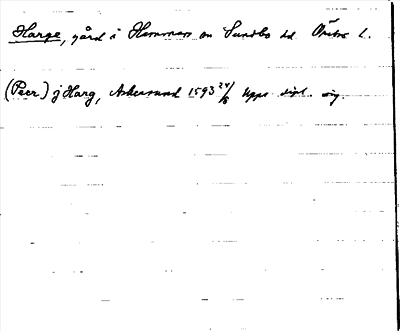 Harge, gård i Hammars sn Sundbo hd Örebro l.
(Peer) j Harg, Askersund 1593 24/8 Upps. dipl. sig.